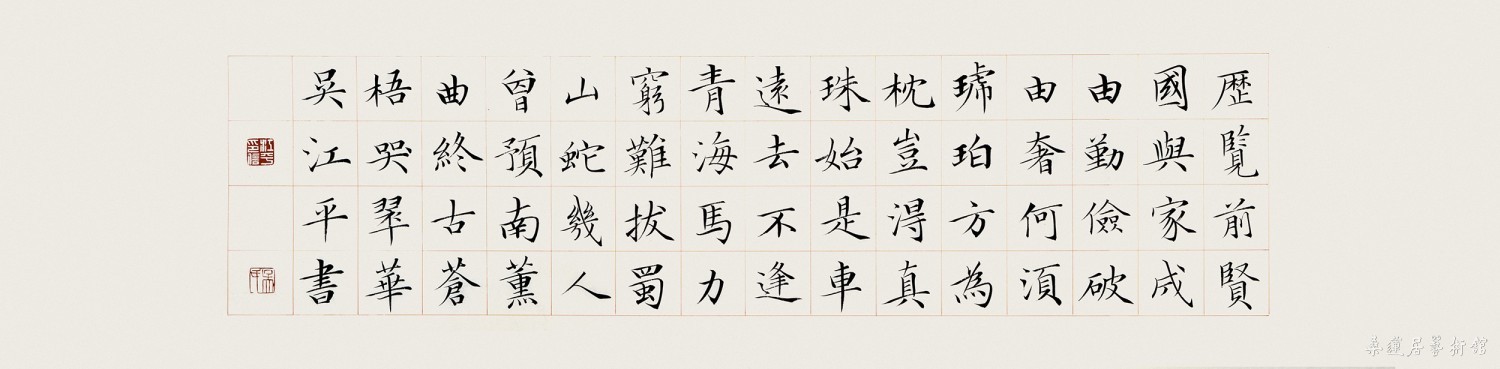 歴覽前賢
國與家成
由勤儉破
由奢何湏
琥珀方為
枕豈淂真
珠始是車
遠去不逢
青海馬力
窮難拔蜀
山蛇幾人
曾預南薰
曲終古蒼
梧哭翠華
吳江平書
桑蓮居藝術館